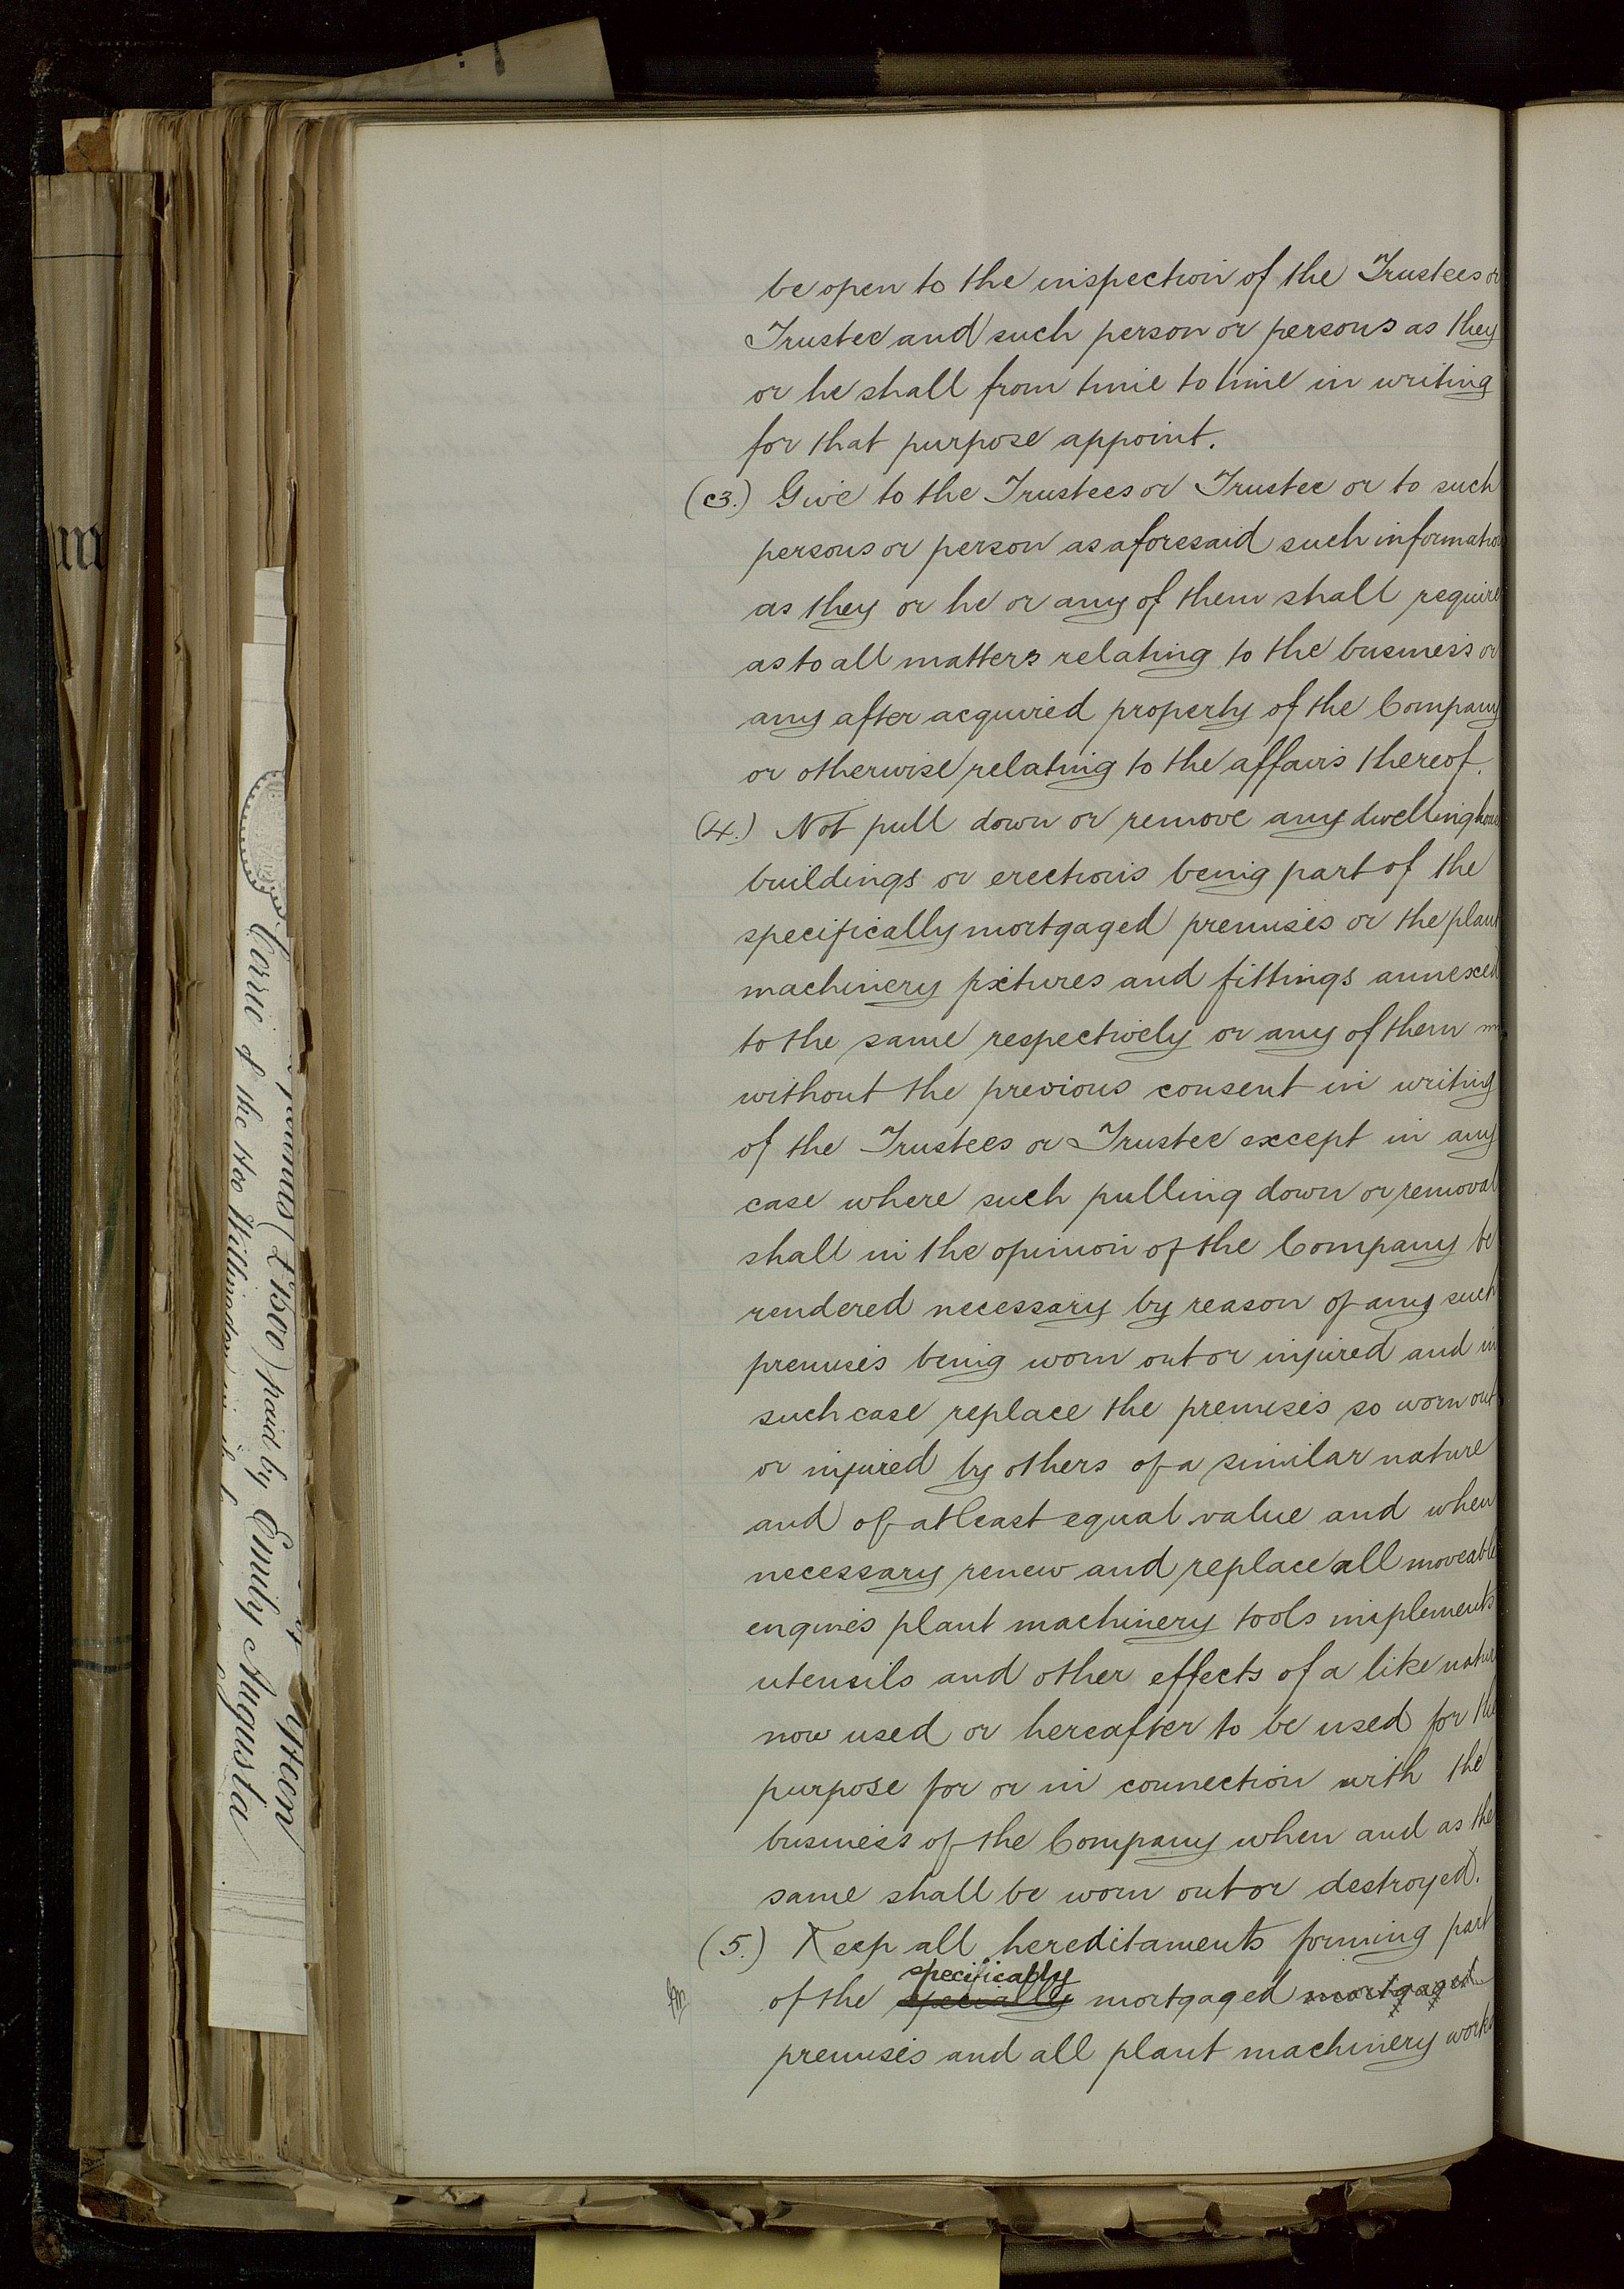 be open to the inspection of the Trustees or
Trustee and such person or persons as they
or he shall from time to time in writing
for that purpose appoint.
(c3.) Give to the Trustees or Trustee or to such
persons or person as aforesaid such information
as they or he or any of them shall require
as to all matters relating to the business or
any after acquired property of the Company
or otherwise relating to the affairs thereof.
(4.) Not pull down or remove any dwellinghouse
buildings or erections being part of the
specifically mortgaged premises or the plant
machinery fixtures and fittings annexed
to the same respectively or any of them
without the previous consent in writing
of the Trustees or Trustee except in any
case where such pulling down or removal
shall in the opinion of the Company be
rendered necessary by reason of any such
premises being worn out or injured and in
such case replace the premises so worn out
or injured by others of a similar nature
and of at least equal value and when
necessary renew and replace all moveable
engines plant machinery tools implements
utensils and other effects of a like nature
now used or hereafter to be used for the
purpose for or in connection with the
business of the Company when and as the
same shall be worn out or destroyed.
(5.) Keep all hereditaments forming part
specifically
of the specially mortgaged mortgaged
premises and all plant machinery works
(£1500) paid by Emily Augusta
Corrie of the